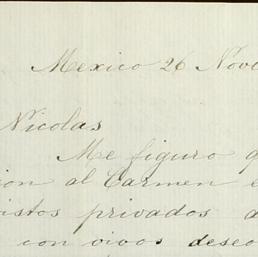 Mexico 26 Nov
Nicolas
Me figuro q
ion al Carmen e
istos privados a
con vivos deseo